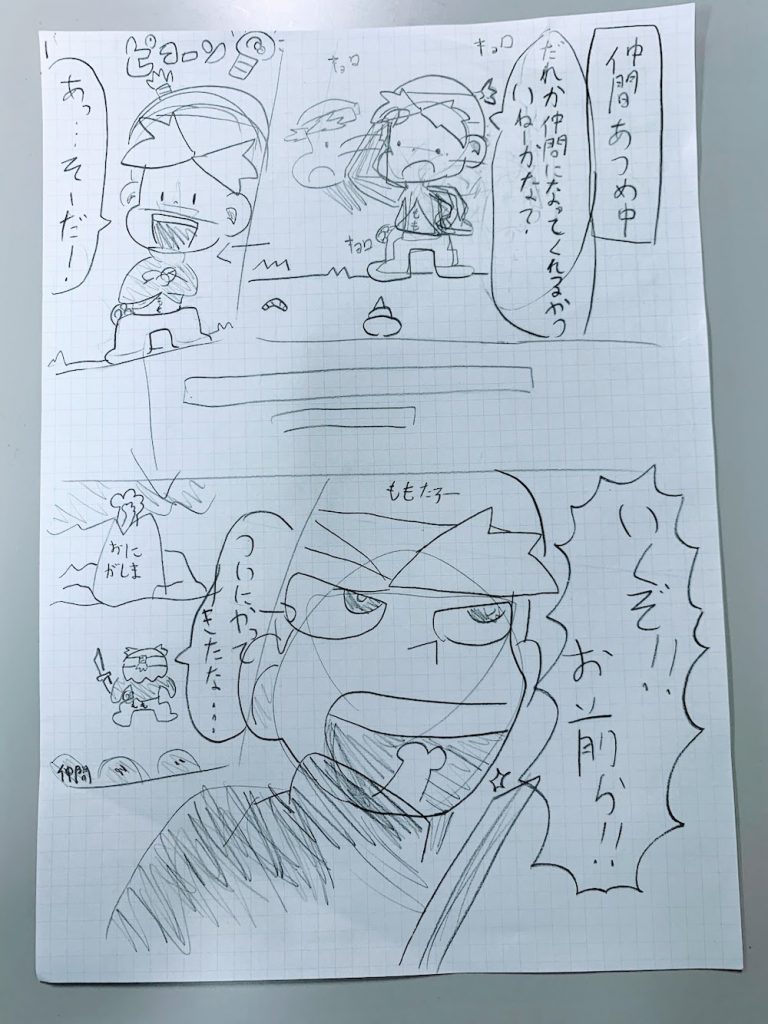 仲間あつめ中
だれか仲間になってくれるかつ
いねーかなて?
キョロ
キョロ
キョロ
もも
ピョーン
あっ…そーだー!
いくぞ!!
お前ら!!
ももたろー
ついにやって
きたな…
おに
がしま
仲間